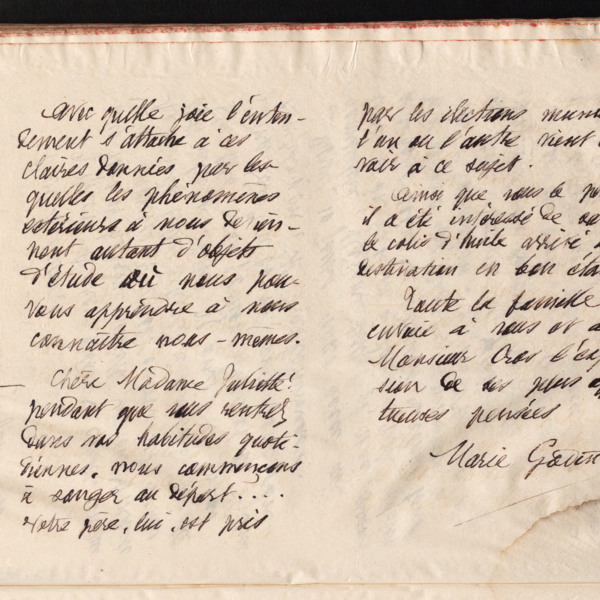 avec quelle joie l'enten-
dement s'attache à ces
claires données, par les-
quelles les phénomènes
extérieurs à nous devien-
nent autant d'objets
d'étude où nous pou-
vons apprendre à nous
connaître nous-mêmes.
Chère Madame Juliette!
pendant que vous rentrez
dans vos habitudes quoti-
diennes, nous commençons
à songer au départ....
Votre père, lui, est pris
par les élections muni
l'un ou l'autre vient
voir à ce sujet.
Ainsi que vous le
il a été intéressé de
le colis d'huile arrivé
destination en bon éta
Toute la famille
envoie à vous et à
Monsieur Cros l'exp
sion de ses plus
tueuses pensées
Marie